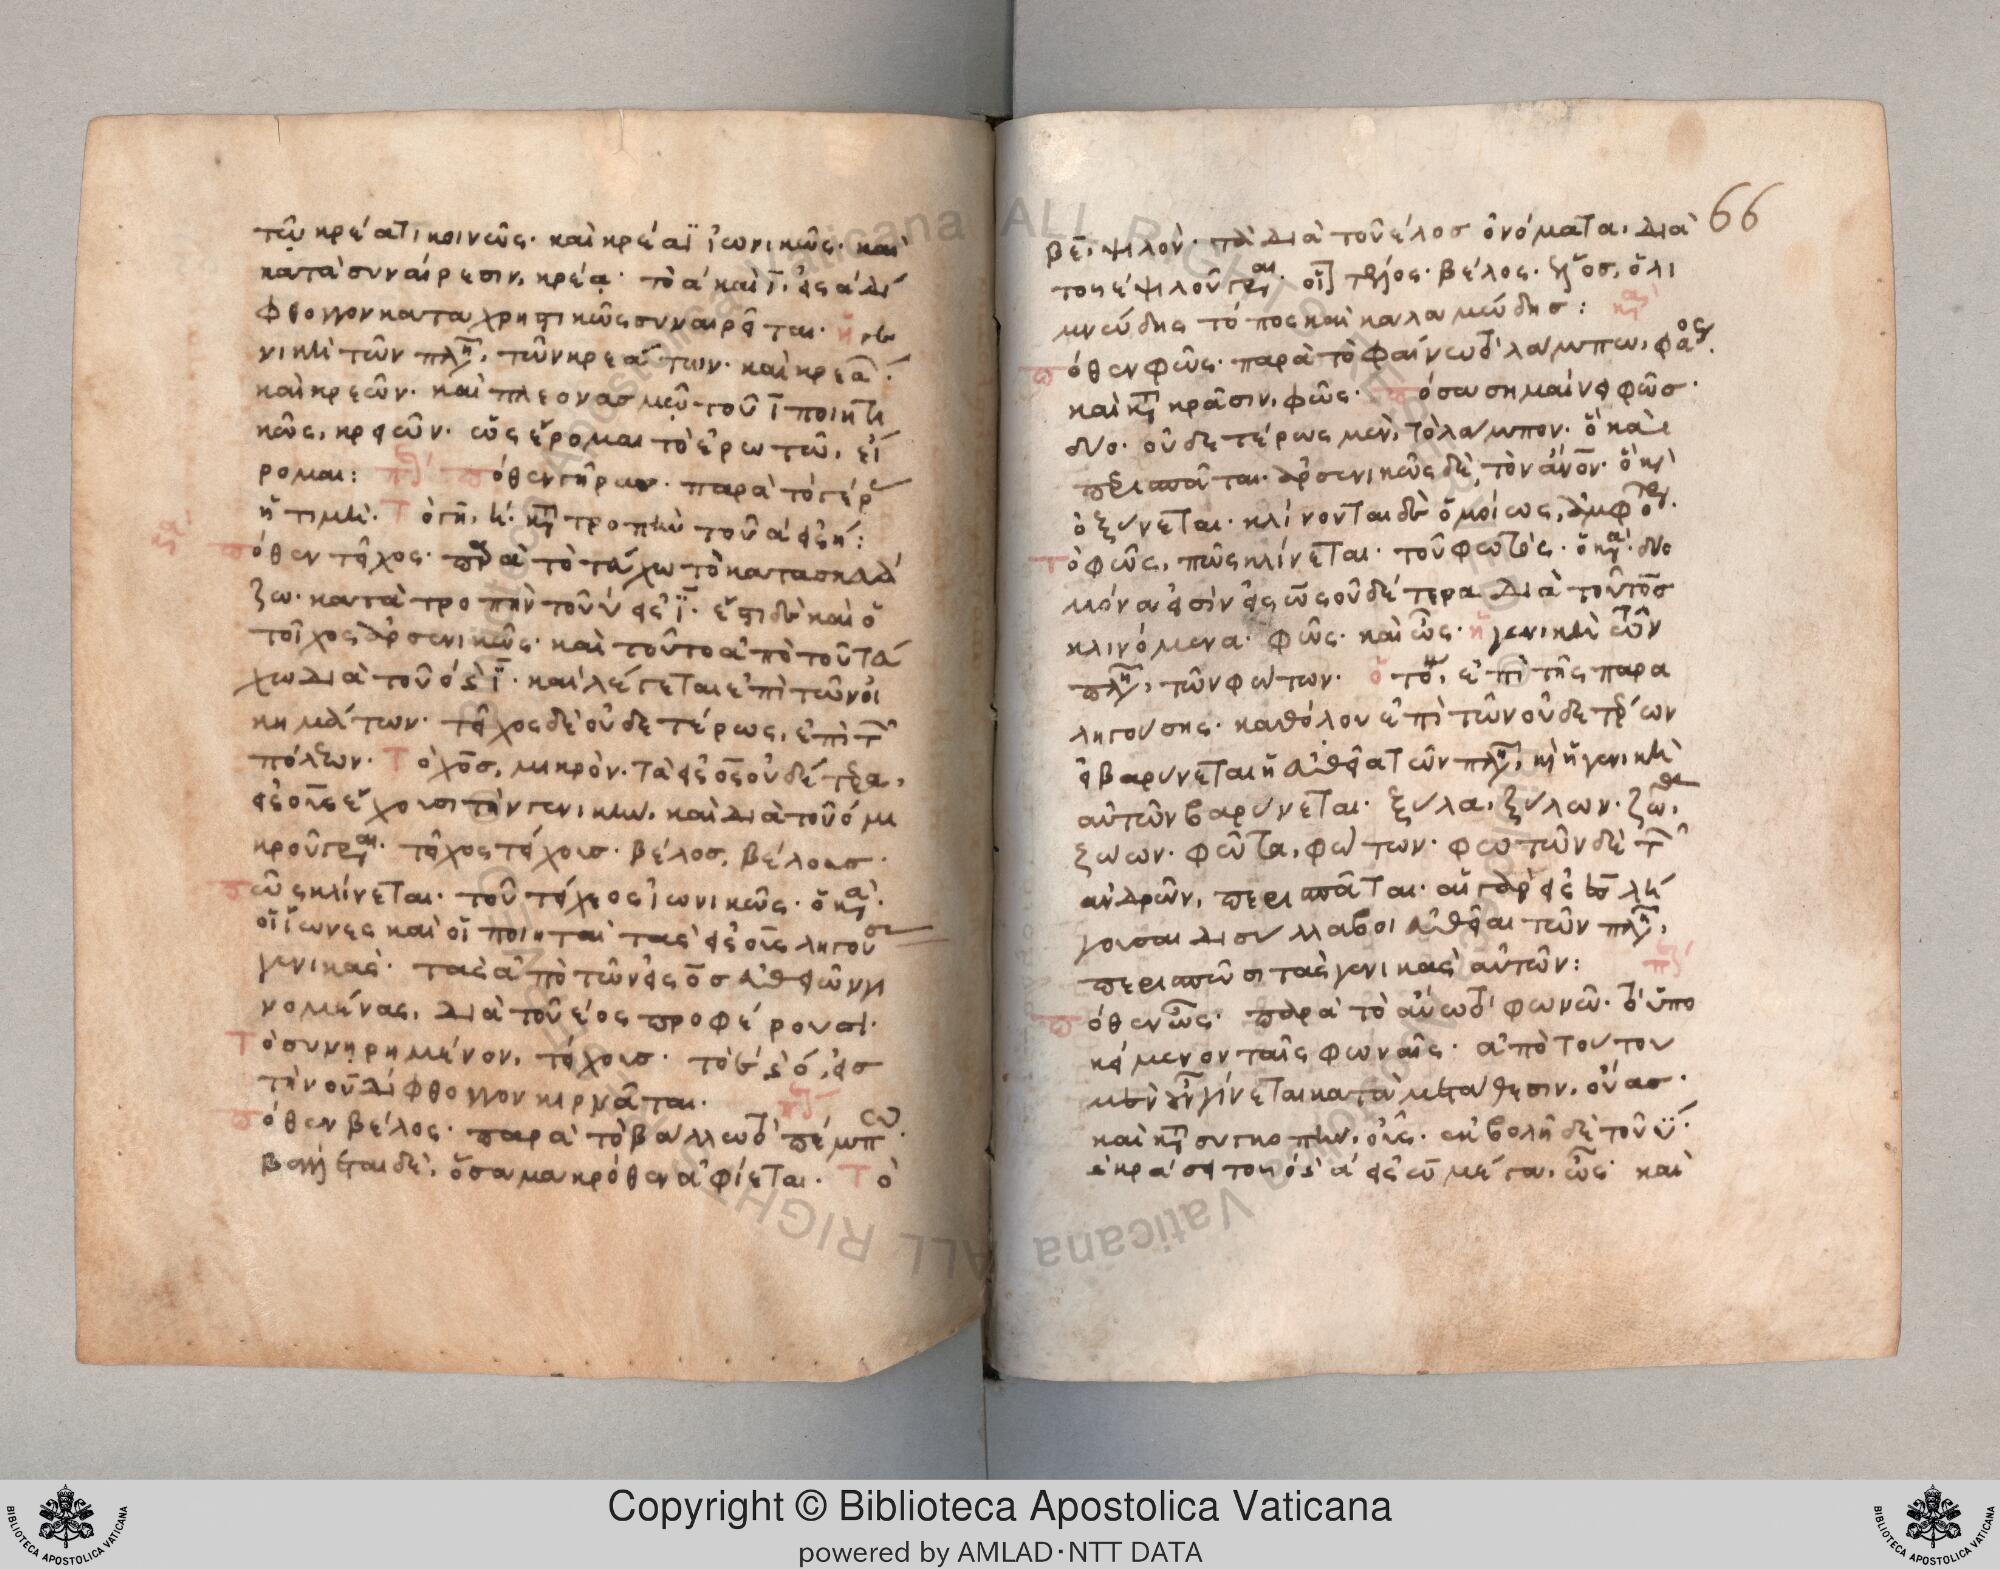 τῶ κρέατι κοινῶς· καὶ κρέαϊ ἰωνικῶς· καὶ
κατὰ συναίρεσιν, κρέᾳ· τὸ ᾱ καὶ ῑ, εἰς ᾱ δί
φθογγον καταχρηστικῶς συναιρεῖται· ἡ γε
νικὴ τῶν πλη, τῶν κρεάτων· καὶ κρεά
καὶ κρεῶν· καὶ πλεονασμῶ τοῦ ῑ ποιητι
κῶς, κρειῶν· ὡς ἔρομαι τὸ ἐρωτῶ, εἴ
ρομαι: πόθεν γῆρας· παρὰ τὸ γέρ
ἡ τιμή· Τὸ γη, η· κτ τροπὴν τοῦ α εἰς η:
πόθεν τεῖχος· παρὰ τὸ τεύχω τὸ κατασκευά
ζω· κατὰ τροπὴν τοῦ ῡ εἰς ϊ· ἔστι δὲ καὶ ὁ
τοῖχος ἀρσενικῶς· καὶ τοῦτο ἀπὸ τοῦ τεύ
χω διὰ τοῦ ο ϊ· καὶ λέγεται ἐπὶ τῶν οἰ
κημάτων· τεῖχος δὲ οὐδετέρως, ἐπὶ τ
πόλεων· Τὸ χος, μικρόν· τὰ εἰς ος οὐδέτερα,
εἰς ους ἔχουσι τὴν γενικὴν, καὶ διὰ τοῦ ο μι
κροῦ γρ· τεῖχος τείχους· βέλος, βέλους·
πῶς κλίνεται· τοῦ τείχεος ἰωνικῶς· ὅ κ·
οἱ ἴωνες καὶ οἱ ποιηταὶ τὰς εἰς ους ληγού
γενικὰς· τὰς ἀπὸ τῶν εἰς ος εὐθειῶν γι
νομένας, διὰ τοῦ εος προφέρουσι·
Τὸ συνῃρημένον, τείχους· τὸ ε ο, εἰς
τὴν ου δίφθογγον κιρνᾶται·
πόθεν βέλος· παρὰ τὸ βάλλω τὸ πέμπω·
βέλη ται δὲ, ὅσα μακρόθεν ἀφίεται· Τὸ
66
βε, ψιλόν· τὰ διὰ τοῦ ελος ὀνόματα, διὰ
του ε ψιλοῦ γρ· οἷ τέλος· βέλος· ἕλος, ὅλι
μνώδης τόπος καὶ καλαμώδης:
πόθεν φῶς· παρὰ τὸ φαίνω τὸ λάμπω, φάος·
καὶ κτ κρᾶσιν, φῶς· πόσα σημαίνει φῶς·
δύο· οὐδετέρως μὲν, τὸ λάμπον· ὃ καὶ
περισπᾶται· ἀρσενικῶς δὲ, τὸν ἄνον· ὃ καὶ
ὀξύνεται· κλίνονται δὲ ὁμοίως, ἀμφότερ·
Τὸ φῶς, πῶς κλίνεται· τοῦ φωτός· ὅ κ· δύο
μόνα εἰσὶν εἰς ως οὐδέτερα διὰ τοῦ τος
κλινόμενα· φῶς· καὶ ὦς· ἡ γενικὴ τῶν
πλη, τῶν φώτων· ὁ τό, ἐπὶ τῆς παρα
ληγούσης· καθόλου ἐπὶ τῶν οὐδετέρων
εἰ βαρύνεται ἡ εὐθεῖα τῶν πλη, καὶ ἡ γενικὴ
αὐτῶν βαρύνεται· ξύλα, ξύλων· ζῶα,
ζώων· φῶτα, φώτων· φωτῶν δὲ τ
ἀνδρῶν, περισπᾶται· αἱ γὰρ εἰς λή
γουσαι δισύλλαβοι εὐθεῖαι τῶν πλη,
περισπῶσι τὰς γενικὰς αὐτῶν:
πόθεν ὦς· παρὰ τὸ αὔω τὸ φωνῶ· τὸ ὑπο
κείμενον ταῖς φωναῖς· ἀπὸ τούτου
μὲν γίνεται κατὰ μετάθεσιν, οὖας·
καὶ κτ συγκοπὴν, οὖς· ἐκβολῆ δὲ τοῦ ϋ·
κράσει του ο α εἰς ω μέγα, ὦς· καὶ
Copyright © Biblioteca Apostolica Vaticana
powered by AMLAD·NTT DATA
BIBLIOTECA APOSTOLICA VATICANA
BIBLIOTECA APOSTOLICA VATICANA